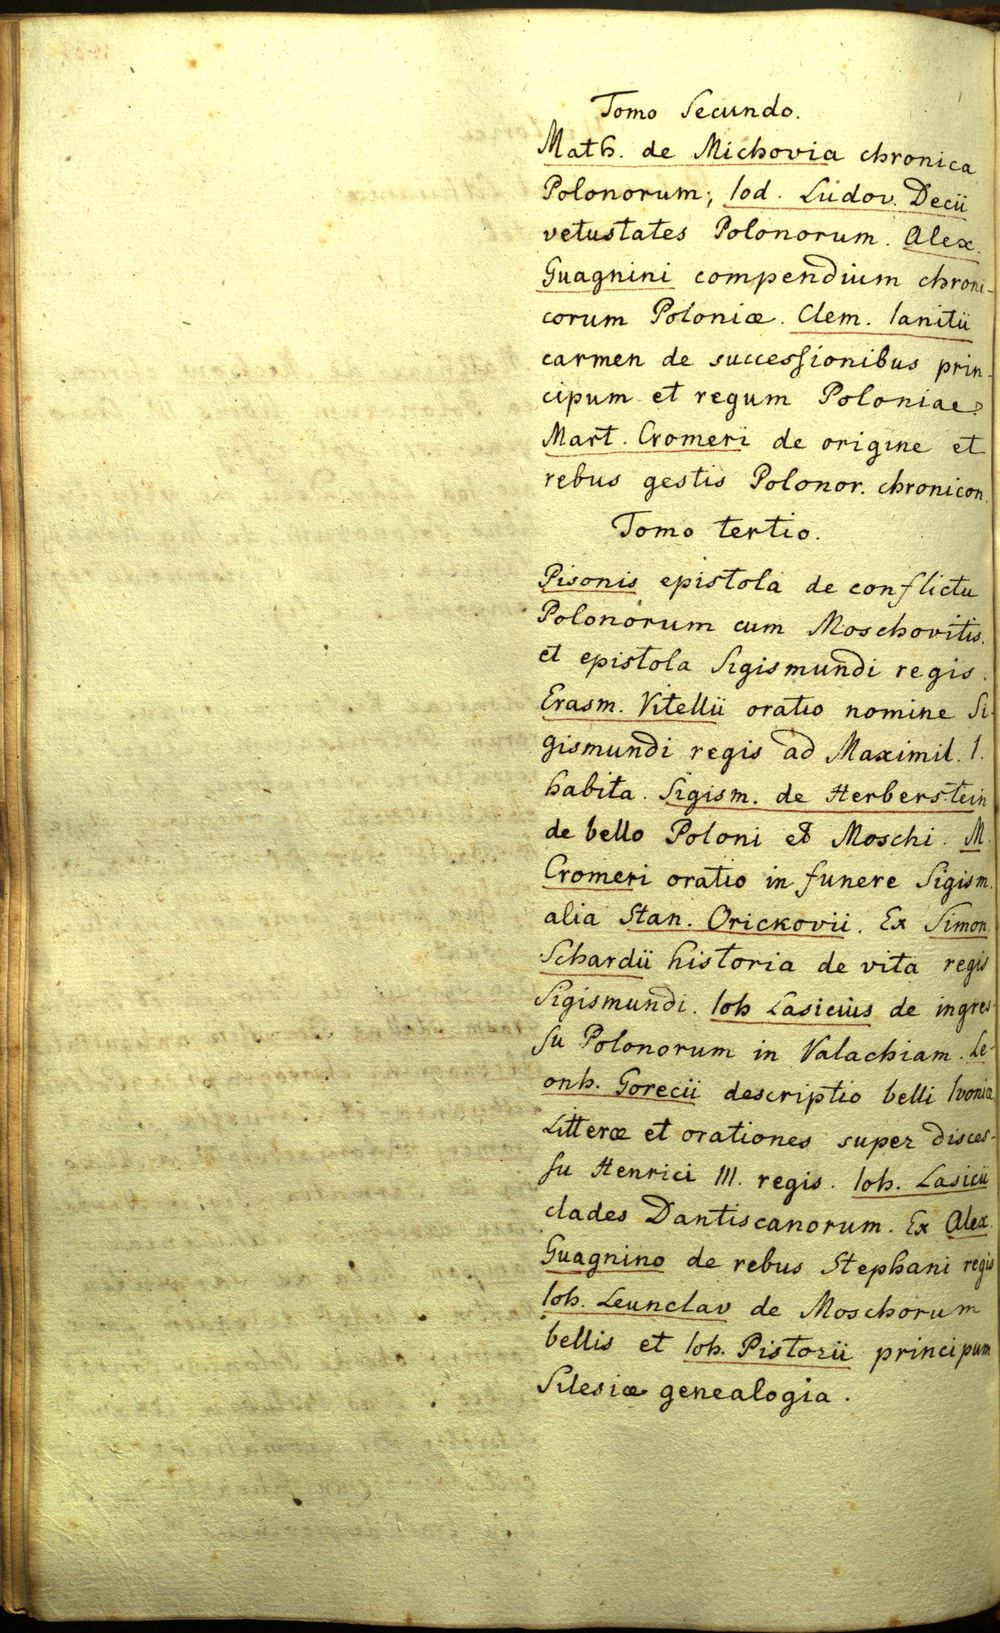 Tomo Secundo.
Math. de Michovia chronica
Polonorum; Iod. Ludov. Decii
vetustates Polonorum. Alex.
Guagnini compendium chroni-
corum Poloniæ. Clem. Ianitii
carmen de successionibus prin-
cipum et regum Poloniae.
Mart. Cromeri de origine et
rebus gestis Polonor. chronicon.
Tomo tertio.
Pisonis epistola de conflictu
Polonorum cum Moschovitis.
et epistola Sigismundi regis.
Erasm. Vitellii oratio nomine Si-
gismundi regis ad Maximil. I.
habita. Sigism. de Herberstein
de bello Poloni et Moschi. M.
Cromeri oratio in funere Sigism.
alia Stan. Orickovii. Ex Simon.
Schardii historia de vita regis
Sigismundi. Ioh Lasicius de ingres-
su Polonorum in Valachiam. Le-
onh. Gorecii descriptio belli Ivoniæ
Litteræ et orationes super disces-
su Henrici III. regis. Ioh. Lasicii
clades Dantiscanorum. Ex Alex.
Guagnino de rebus Stephani regis
Ioh. Leunclav de Moschorum
bellis et Ioh. Pistorii principum
Silesiæ genealogia.